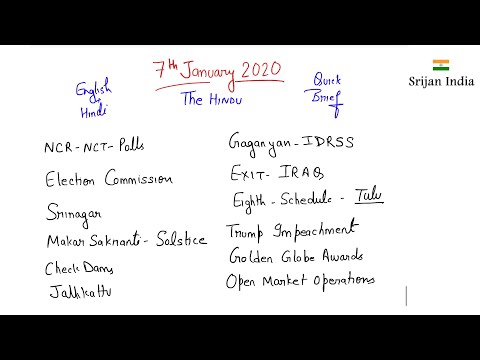 7th January 2020
Srijan India
English
Hindi
The Hindu
Quick
Brief
NCR - NCT - Polls
Election Commission
Srinagar
Makar Saknanti - Solstice
Check Dams
Jallikattu
Gaganyan - IDRSS
Exit - IRAQ
Eighth - Schedule - Tulu
Trump Impeachment
Golden Globe Awards
Open Market Operations